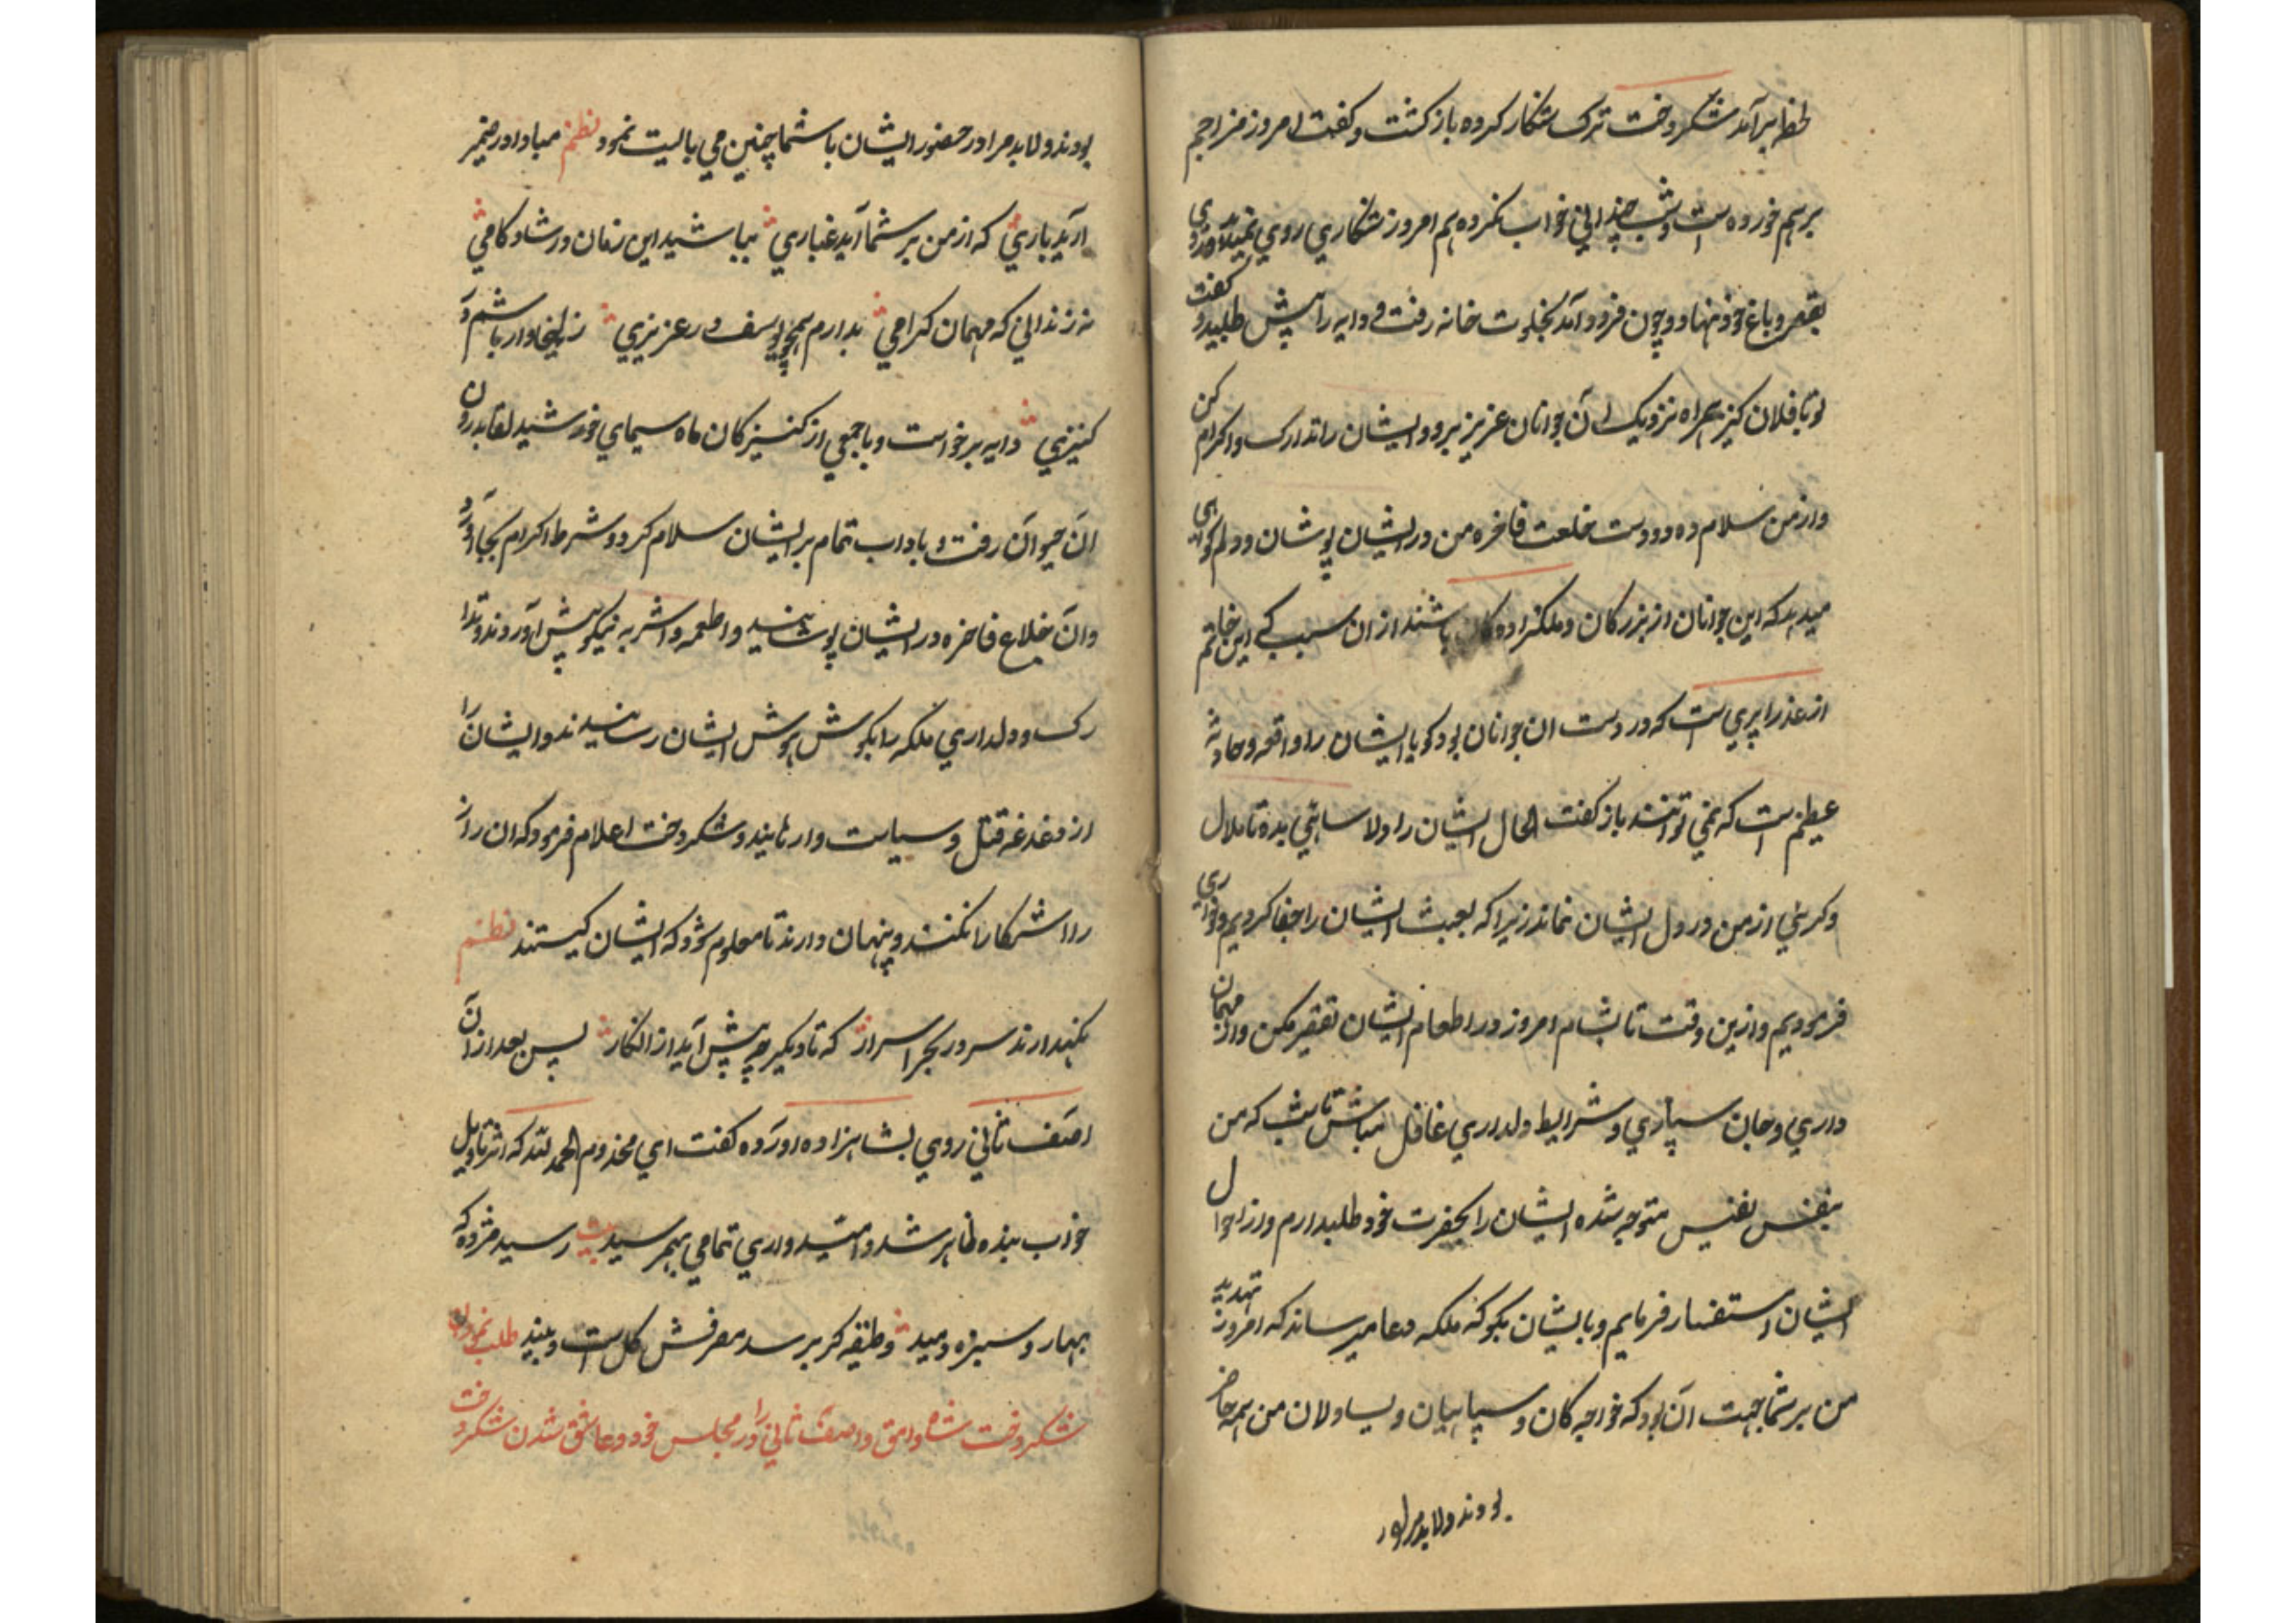 لحظه برآمد شکردخت ترک شکار کرده باز کشت و کفت امروز مزاجم
برهم خورده است و شب چندانی خواب نکرده ایم امروز شکاری روی نمیدهد روی
بقصر و باغ خود نهاد و چون فرود آمد بخلوت خانه رفت و دایه را پیش طلبید و کفت
تو با فلان کنیز همراه نزدیک آن جوانان عزیز برو و ایشان را تدارک و اکرام کن
و از من سلام ده و دو دست خلعت فاخره من در ایشان پوشان و دلم کواهی
میدهد که این جوانان از بزرکان و ملکزادکان باشند از ان سبب که این خاتم
از عذرا پری است که در دست ان جوانان بود کویا ایشان را واقعه و حادثه
عظیم است که نمی توانند باز کفت الحال ایشان را دلاسائی بده تا ملال
و کربی از من در دل ایشان نماند زیرا که بعبث ایشان را جفا کردیم و خواری
فرمودیم و ازین وقت تا بشام امروز در اطعام ایشان تقصیر مکن و از مهمان
داری و جان سپاری و شرایط دلداری غافل مباش تا شب که من
بنفس نفیس متوجه شده ایشان را بحضرت خود طلبدارم و از احوال
ایشان استفسار فرمایم و با ایشان بکو که ملکه دعا میرساند که امروز تهدید
من بر شما جهت آن بود که خواجه کان و سپاهیان و یساولان من همه حاضر
بودند و لابد مرا در
بودند و لابد مرا در حضور ایشان با شما چنین می بایست نمود نظم مبادا در ضمیر
آرید باری که از من بر شما آید غباری بباشید این زمان در شادکامی
نه زندانی که مهمان کرامی بدارم همچو یوسف در عزیزی زلیخاوار باشم در
کنیزی دایه برخواست و با جمعی از کنیزکان ماه سیمای خورشید لقا بدرون
ان حیوان رفت و باداب تمام بر ایشان سلام کرد و شرط اکرام بجا آورد
وان خلاع فاخره در ایشان پوشانید و اطعمه و اشربه نیکو پیش آوردند و تدا
رک و دلداری ملکه را بکوش هوش ایشان رسانیدند و ایشان را
از دغدغه قتل و سیاست وارهانیدند و شکردخت اعلام فرمود که ان راز
را اشکارا نکنند و پنهان دارند تا معلوم شود که ایشان کیستند نظم
نکهدارند سر در بحر اسرار که تا دیکر چه پیش آید از انکار پس بعد از ان
اصف ثانی روی بشاهزاده آورده کفت ای مخدوم الحمد لله که اثر تاویل
خواب بنده ظاهر شد و امیدواری تمامی بهم رسید بیت رسید مژده که
بهار و سبزه دمید وظیفه کر برسد مصرفش کل است و نبید طلب نمودن
شکردخت شاه وامق و اصف ثانی را در مجلس خود و عاشق شدن شکردخت